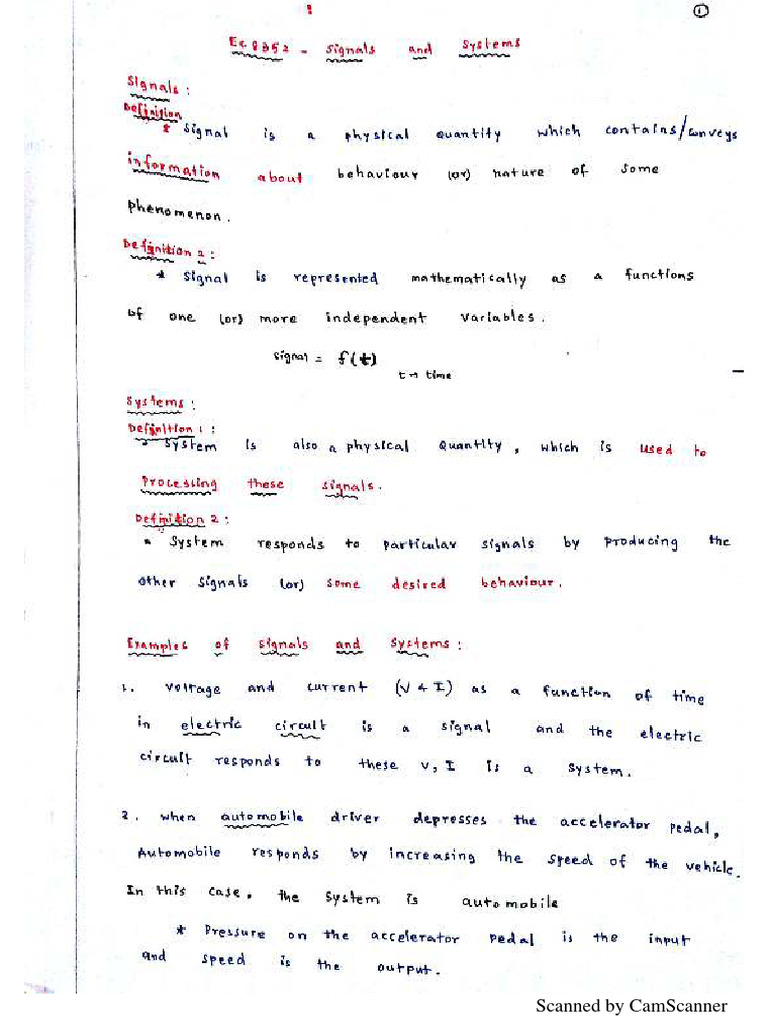 1
EC8352 - Signals and Systems
Signals:
Definition
* Signal is a physical quantity which contains/conveys
information about behaviour (or) nature of some
phenomenon.
Definition 2:
* Signal is represented mathematically as a functions
of one (or) more independent variables.
Signal = f(t)
t → time
Systems:
Definition 1:
* System is also a physical Quantity, which is used to
Processing these signals.
Definition 2:
* System responds to particular signals by producing the
other signals (or) some desired behaviour.
Examples of Signals and Systems:
1. Voltage and current (V & I) as a function of time
in electric circuit is a signal and the electric
circuit responds to these V, I is a system.
2. When automobile driver depresses the accelerator pedal,
Automobile responds by increasing the speed of the vehicle.
In this case, the system is automobile
* Pressure on the accelerator pedal is the input
and speed is the output.
Scanned by CamScanner